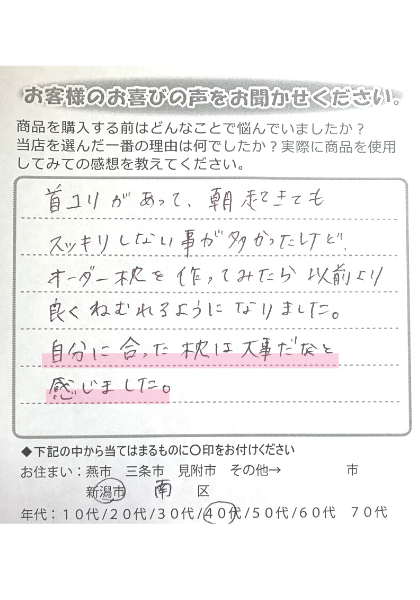 お客様のお喜びの声をお聞かせください。
商品を購入する前はどんなことで悩んでいましたか？
当店を選んだ一番の理由は何でしたか？実際に商品を使用
してみての感想を教えてください。
首コリがあって、朝起きても
スッキリしない事が多かったけど、
オーダー枕を作ってみたら以前より
良くねむれるようになりました。
自分に合った枕は大事だなと
感じました。
◆下記の中から当てはまるものに〇印をお付けください
お住まい：燕市　三条市　見附市　その他→　　　　市
新潟市　南　区
年代：１０代/２０代/３０代/４０代/５０代/６０代　７０代